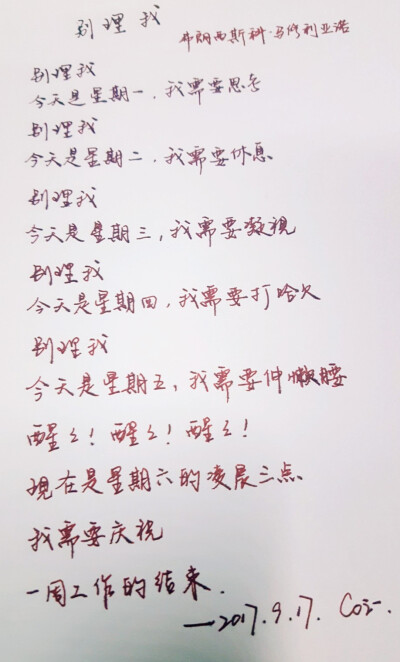 别理我
弗朗西斯科·马修利亚诺
别理我
今天是星期一,我需要思考
别理我
今天是星期二,我需要休息
别理我
今天是星期三,我需要凝視
别理我
今天是星期四,我需要打哈欠
别理我
今天是星期五,我需要伸懒腰
醒々!醒々!醒々!
現在是星期六的凌晨三点
我需要庆祝
一周工作的结束.
—2017.9.17.